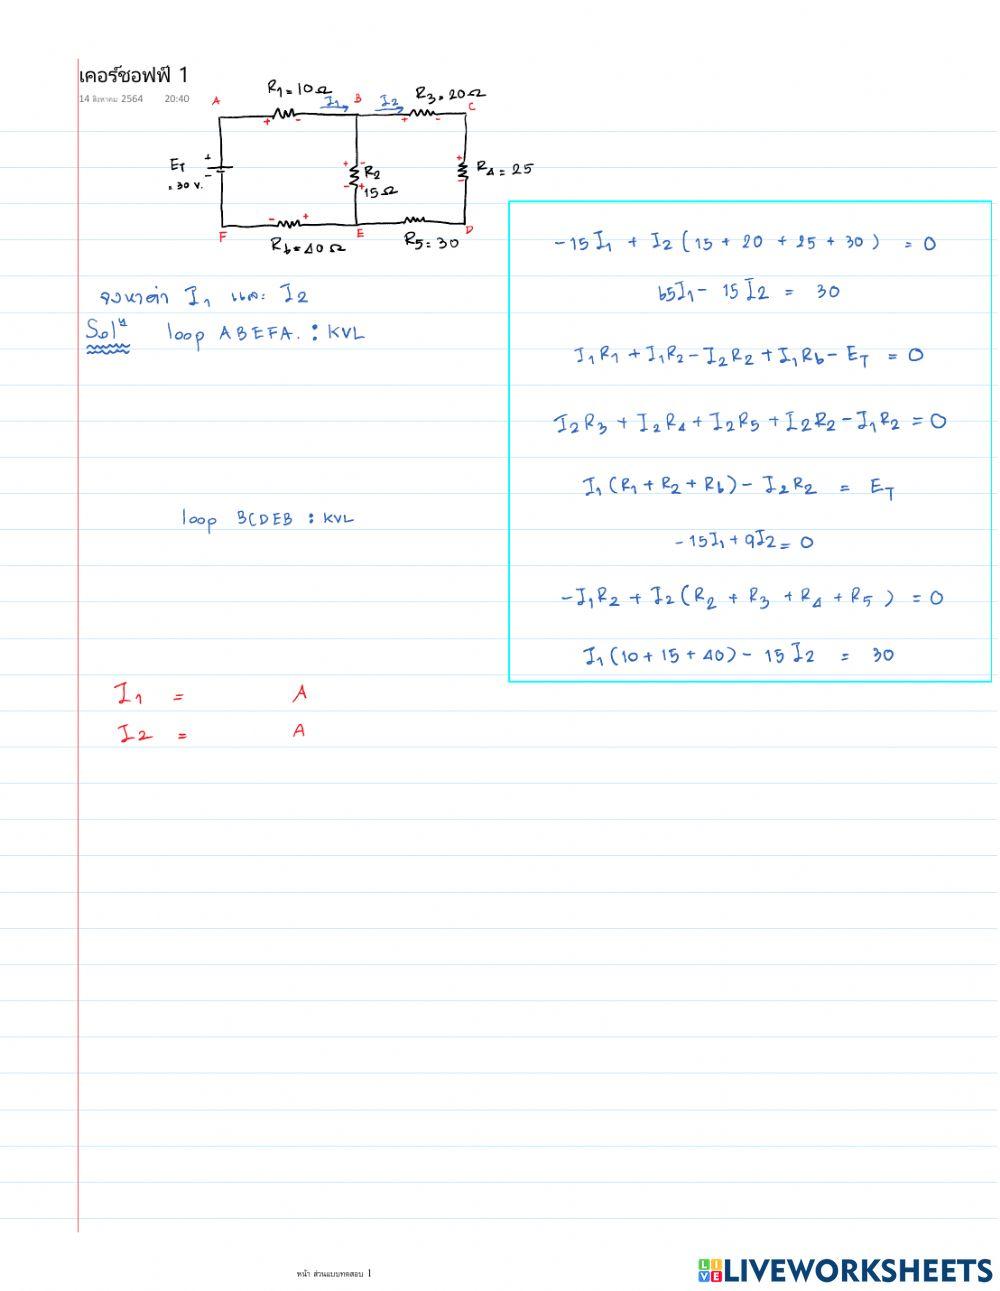 เคอร์ซอฟฟ์ 1
14 สิงหาคม 2564 20:40
R1 = 10Ω
I1
I2
R3 = 20Ω
A
B
C
ET = 30 V.
R2 15Ω
R4 = 25
F
E
D
R6 = 40Ω
R5 = 30
จงหาค่า I1 และ I2
Solⁿ loop ABEFA. : KVL
loop BCDEB : KVL
I1 = A
I2 = A
-15I1 + I2(15 + 20 + 25 + 30) = 0
65I1 - 15I2 = 30
I1R1 + I1R2 - I2R2 + I1R6 - ET = 0
I2R3 + I2R4 + I2R5 + I2R2 - I1R2 = 0
I1(R1 + R2 + R6) - I2R2 = ET
-15I1 + 9I2 = 0
-I1R2 + I2(R2 + R3 + R4 + R5) = 0
I1(10 + 15 + 40) - 15I2 = 30
หน้า ส่วนแบบทดสอบ 1
LIVE LIVEWORKSHEETS